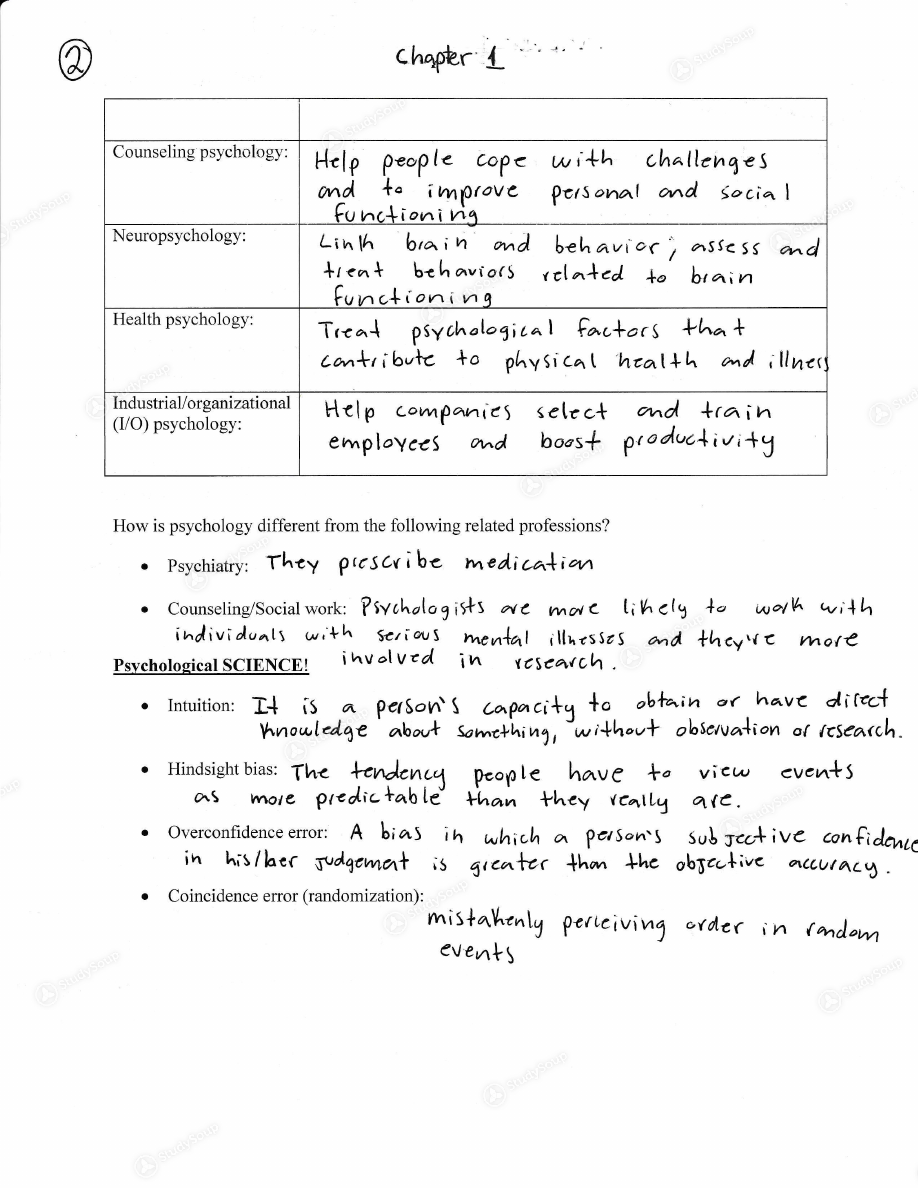 2
Chapter 1
Counseling psychology:
Help people cope with challenges
and to improve personal and social
functioning
Neuropsychology:
Link brain and behavior; assess and
treat behaviors related to brain
functioning
Health psychology:
Treat psychological factors that
contribute to physical health and illness
Industrial/organizational
(I/O) psychology:
Help companies select and train
employees and boost productivity
How is psychology different from the following related professions?
• Psychiatry: They prescribe medication
• Counseling/Social work: Psychologists are more likely to work with
individuals with serious mental illnesses and they're more
involved in research.
Psychological SCIENCE!
• Intuition: It is a person's capacity to obtain or have direct
knowledge about something, without observation or research.
• Hindsight bias: The tendency people have to view events
as more predictable than they really are.
• Overconfidence error: A bias in which a person's subjective confidence
in his/her judgement is greater than the objective accuracy.
• Coincidence error (randomization):
mistakenly perceiving order in random
events
StudySoup